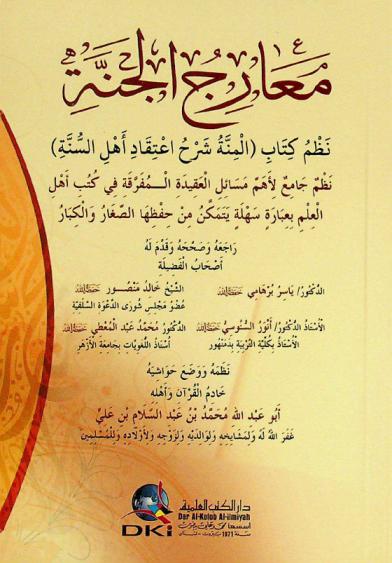 مَعَارِجُ الجَنَّةِ
نَظْمُ كِتَابِ (المِنَّةُ شَرْحُ اعْتِقَادِ أَهْلِ السُّنَّةِ)
نَظْمٌ جَامِعٌ لِأَهَمِّ مَسَائِلِ العَقِيدَةِ الْمُفَرَّقَةِ فِي كُتُبِ أَهْلِ
العِلْمِ بِعِبَارَةٍ سَهْلَةٍ يَتَمَكَّنُ مِنْ حِفْظِهَا الصِّغَارُ وَالْكِبَارُ
رَاجَعَهُ وَصَحَّحَهُ وَقَدَّمَ لَهُ
أَصْحَابُ الفَضِيلَةِ
الدُّكْتُورُ/ يَاسِر بُرْهَامِي حَفِظَهُ اللهُ
الشَّيْخُ خَالِد مَنْصُور حَفِظَهُ اللهُ
عُضْو مَجْلِسِ شُورَى الدَّعْوَةِ السَّلَفِيَّةِ
الأُسْتَاذُ الدُّكْتُورُ/ أَنْوَر السُّنُوسِيُّ حَفِظَهُ اللهُ
الدُّكْتُورُ مُحَمَّد عَبْد المُعْطِي حَفِظَهُ اللهُ
الأُسْتَاذُ بِكُلِّيَّةِ التَّرْبِيَةِ بِدَمَنْهُور
أُسْتَاذُ اللُّغَوِيَّاتِ بِجَامِعَةِ الأَزْهَرِ
نَظَمَهُ وَوَضَعَ حَوَاشِيَهُ
خَادِمُ القُرْآنِ وَأَهْلِهِ
أَبُو عَبْدِ الله مُحَمَّدُ بْنُ عَبْدِ السَّلَامِ بْنِ عَلِيٍّ
غَفَرَ اللهُ لَهُ وَلِمَشَايِخِهِ وَلِوَالِدَيْهِ وَلِزَوْجِهِ وَلِأَوْلَادِهِ وَلِلْمُسْلِمِينَ
دار الكتب العلمية
Dar Al-Kotob Al-ilmiyah
أسسها محمد علي بيضون
سنة 1971 بيروت - لبنان
DKi